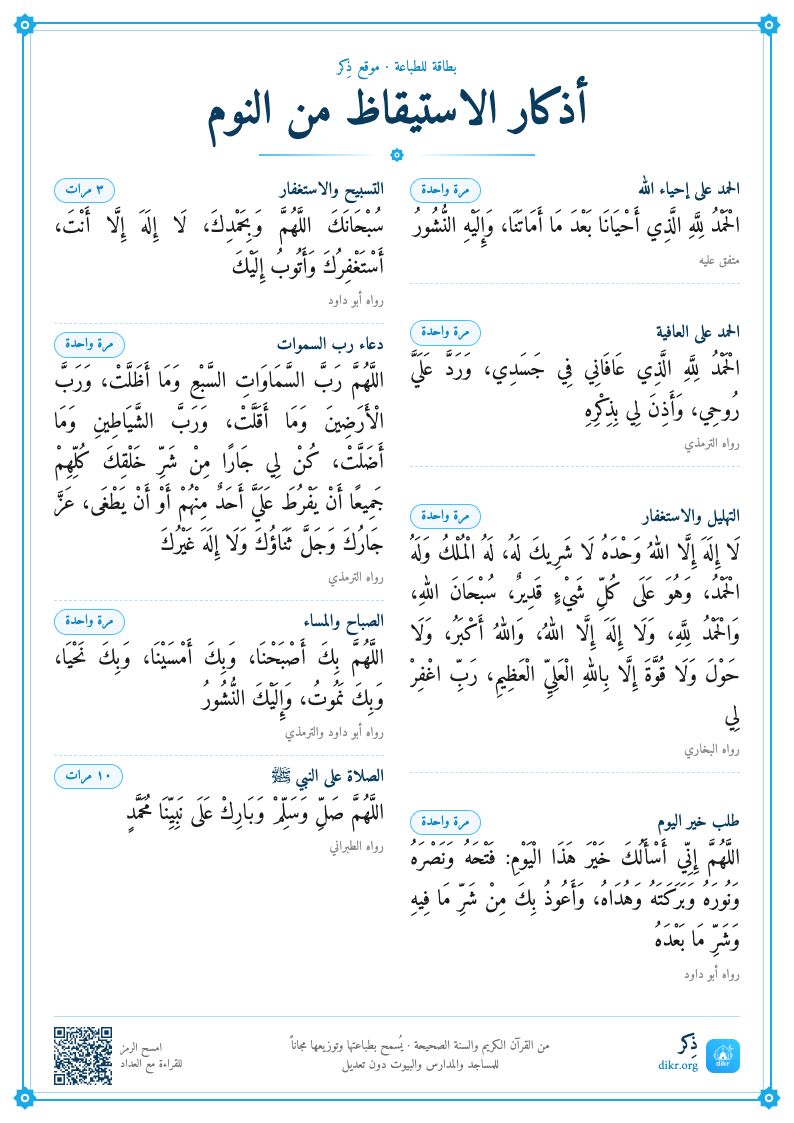 بطاقة للطباعة · موقع ذِكر
أذكار الاستيقاظ من النوم
الحمد على إحياء الله
مرة واحدة
الْحَمْدُ لِلَّهِ الَّذِي أَحْيَانَا بَعْدَ مَا أَمَاتَنَا، وَإِلَيْهِ النُّشُورُ
متفق عليه
الحمد على العافية
مرة واحدة
الْحَمْدُ لِلَّهِ الَّذِي عَافَانِي فِي جَسَدِي، وَرَدَّ عَلَيَّ
رُوحِي، وَأَذِنَ لِي بِذِكْرِهِ
رواه الترمذي
التهليل والاستغفار
مرة واحدة
لَا إِلَهَ إِلَّا اللهُ وَحْدَهُ لَا شَرِيكَ لَهُ، لَهُ الْمُلْكُ وَلَهُ
الْحَمْدُ، وَهُوَ عَلَى كُلِّ شَيْءٍ قَدِيرٌ، سُبْحَانَ اللهِ،
وَالْحَمْدُ لِلَّهِ، وَلَا إِلَهَ إِلَّا اللهُ، وَاللهُ أَكْبَرُ، وَلَا
حَوْلَ وَلَا قُوَّةَ إِلَّا بِاللهِ الْعَلِيِّ الْعَظِيمِ، رَبِّ اغْفِرْ
لِي
رواه البخاري
طلب خير اليوم
مرة واحدة
اللَّهُمَّ إِنِّي أَسْأَلُكَ خَيْرَ هَذَا الْيَوْمِ: فَتْحَهُ وَنَصْرَهُ
وَنُورَهُ وَبَرَكَتَهُ وَهُدَاهُ، وَأَعُوذُ بِكَ مِنْ شَرِّ مَا فِيهِ
وَشَرِّ مَا بَعْدَهُ
رواه أبو داود
التسبيح والاستغفار
٣ مرات
سُبْحَانَكَ اللَّهُمَّ وَبِحَمْدِكَ، لَا إِلَهَ إِلَّا أَنْتَ،
أَسْتَغْفِرُكَ وَأَتُوبُ إِلَيْكَ
رواه أبو داود
دعاء رب السموات
مرة واحدة
اللَّهُمَّ رَبَّ السَّمَاوَاتِ السَّبْعِ وَمَا أَظَلَّتْ، وَرَبَّ
الْأَرَضِينَ وَمَا أَقَلَّتْ، وَرَبَّ الشَّيَاطِينِ وَمَا
أَضَلَّتْ، كُنْ لِي جَارًا مِنْ شَرِّ خَلْقِكَ كُلِّهِمْ
جَمِيعًا أَنْ يَفْرُطَ عَلَيَّ أَحَدٌ مِنْهُمْ أَوْ أَنْ يَطْغَى، عَزَّ
جَارُكَ وَجَلَّ ثَنَاؤُكَ وَلَا إِلَهَ غَيْرُكَ
رواه الترمذي
الصباح والمساء
مرة واحدة
اللَّهُمَّ بِكَ أَصْبَحْنَا، وَبِكَ أَمْسَيْنَا، وَبِكَ نَحْيَا،
وَبِكَ نَمُوتُ، وَإِلَيْكَ النُّشُورُ
رواه أبو داود والترمذي
الصلاة على النبي ﷺ
١٠ مرات
اللَّهُمَّ صَلِّ وَسَلِّمْ وَبَارِكْ عَلَى نَبِيِّنَا مُحَمَّدٍ
رواه الطبراني
dikr
ذِكر
dikr.org
من القرآن الكريم والسنة الصحيحة · يُسمح بطباعتها وتوزيعها مجاناً
للمساجد والمدارس والبيوت دون تعديل
امسح الرمز
للقراءة مع العداد